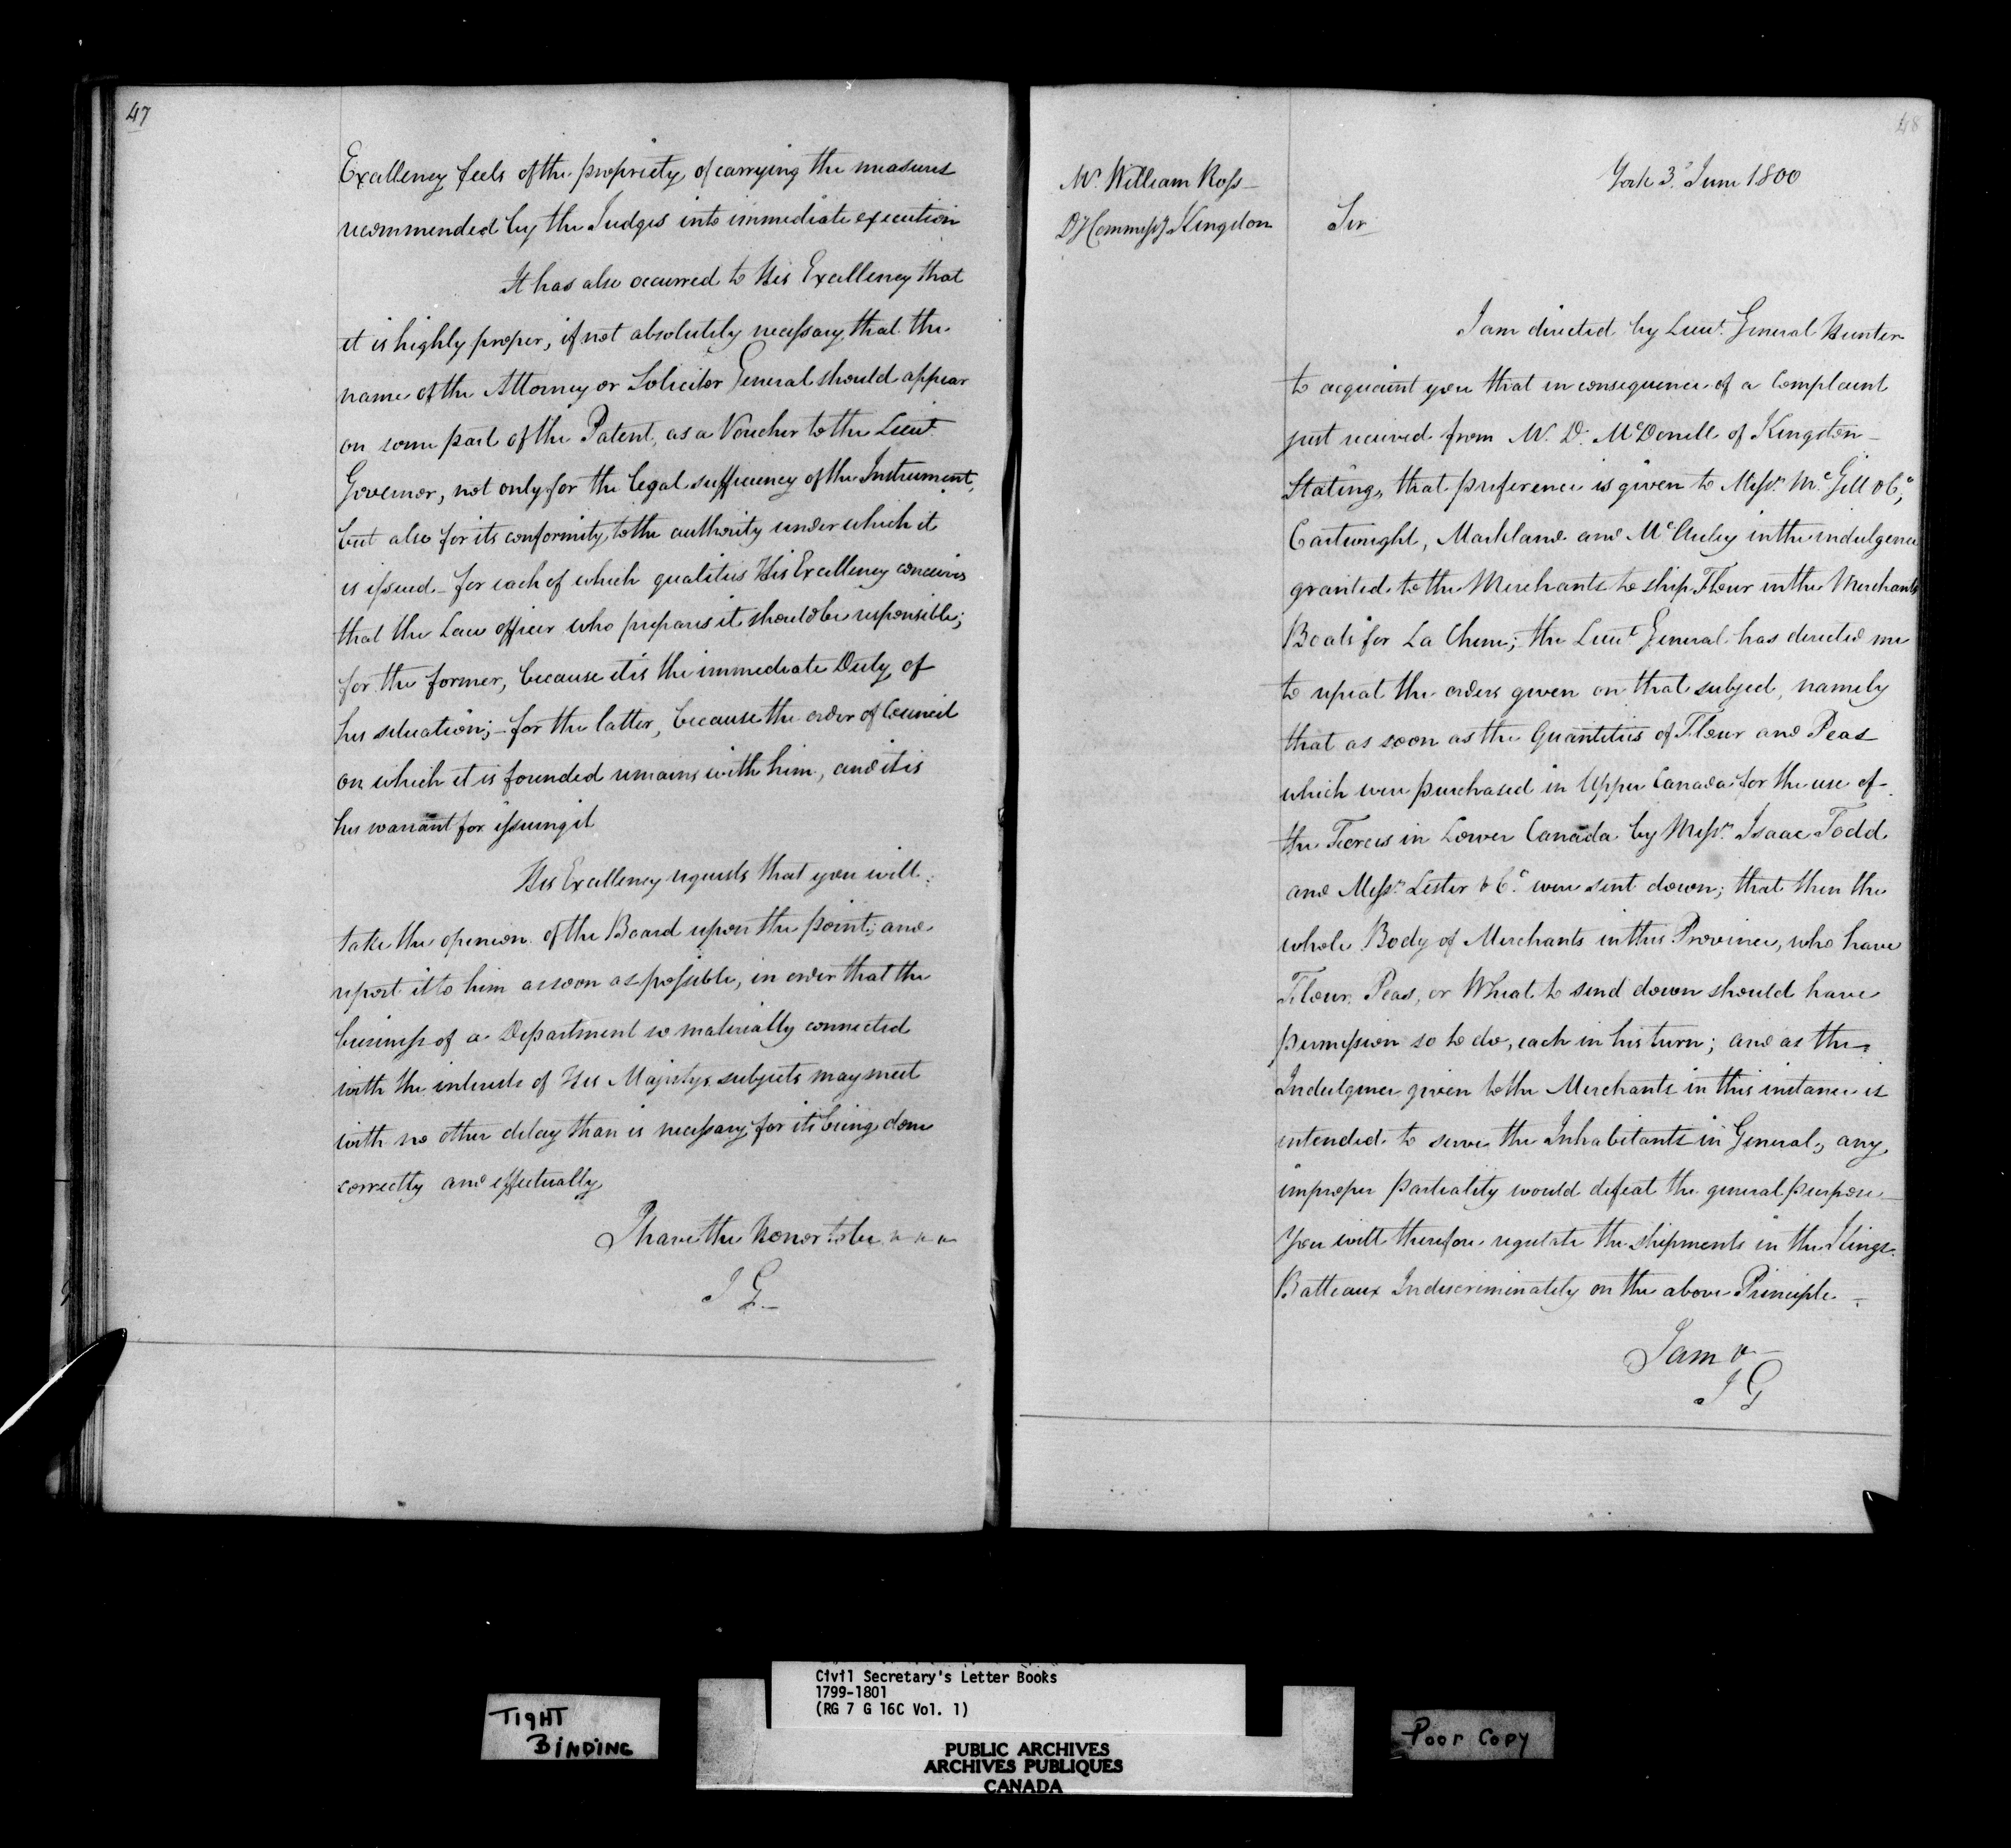 47
Excellency feels of the propriety of carrying the measures
recommended by the Judges into immediate execution
It has also occurred to His Excellency that
it is highly proper, if not absolutely necessary, that the
name of the Attorney or Solicitor General should appear
on some part of the Patent, as a Voucher to the Lieut.
Governor, not only for the legal sufficiency of the Instrument,
but also for its conformity to the authority under which it
is issued – for each of which qualities His Excellency conceives
that the Law officer who prepares it should be responsible;
for the former, because it is the immediate Duty of
his situation; – for the latter, because the order of Council
on which it is founded remains with him, and it is
his warrant for issuing it
His Excellency requests that you will
take the opinion of the Board upon the point; and
report it to him as soon as possible, in order that the
business of a Department so materially connected
with the interests of His Majestys subjects may meet
with no other delay than is necessary for its being done
correctly and effectually
I have the Honor to be
J G –
48
York 3.d June 1800
Mr. William Ross –
Dy Commissy Kingston
Sir
I am directed by Lieut. General Hunter
to acquaint you that in consequence of a Complaint
just received from Mr. D. McDonell of Kingston –
Stating, that preference is given to Messrs. McGill & Co,
Cartwright, Markland and McAuley in the indulgence
granted to the Merchants to ship Flour in the Merchants
Boats for La Chine; the Lieut. General has directed me
to repeat the orders given on that subject, namely
that as soon as the Quantities of Flour and Peas
which were purchased in Upper Canada for the use of
the Forces in Lower Canada by Messrs. Isaac Todd
and Messrs. Lester & Co. were sent down; that then the
whole Body of Merchants in this Province, who have
Flour, Peas, or Wheat to send down should have
permission so to do, each in his turn; and as the
Indulgence given to the Merchants in this instance is
intended to serve the Inhabitants in General, any
improper partiality would defeat the general purpose –
You will therefore regulate the shipments in the Kings
Batteaux Indiscriminately on the above Principle –
I am &
J G
TIGHT
BINDING
Civil Secretary's Letter Books
1799-1801
(RG 7 G 16C Vol. 1)
PUBLIC ARCHIVES
ARCHIVES PUBLIQUES
CANADA
Poor Copy